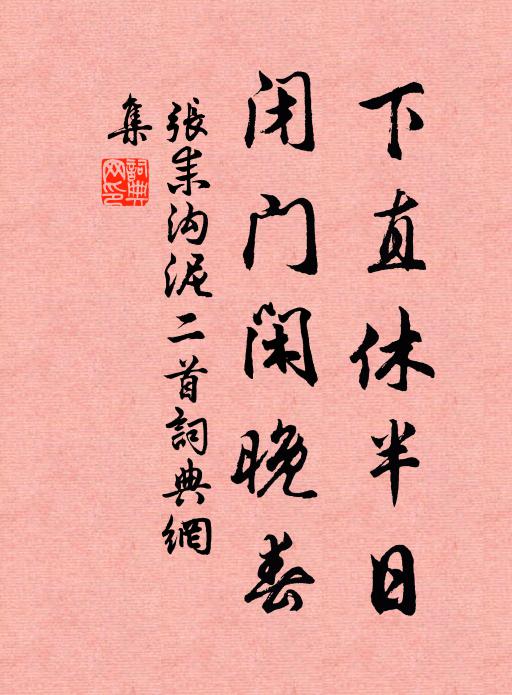 下直休半日
闭门闲晚春
張耒沟泥二首詞典網
集
詞典
网印